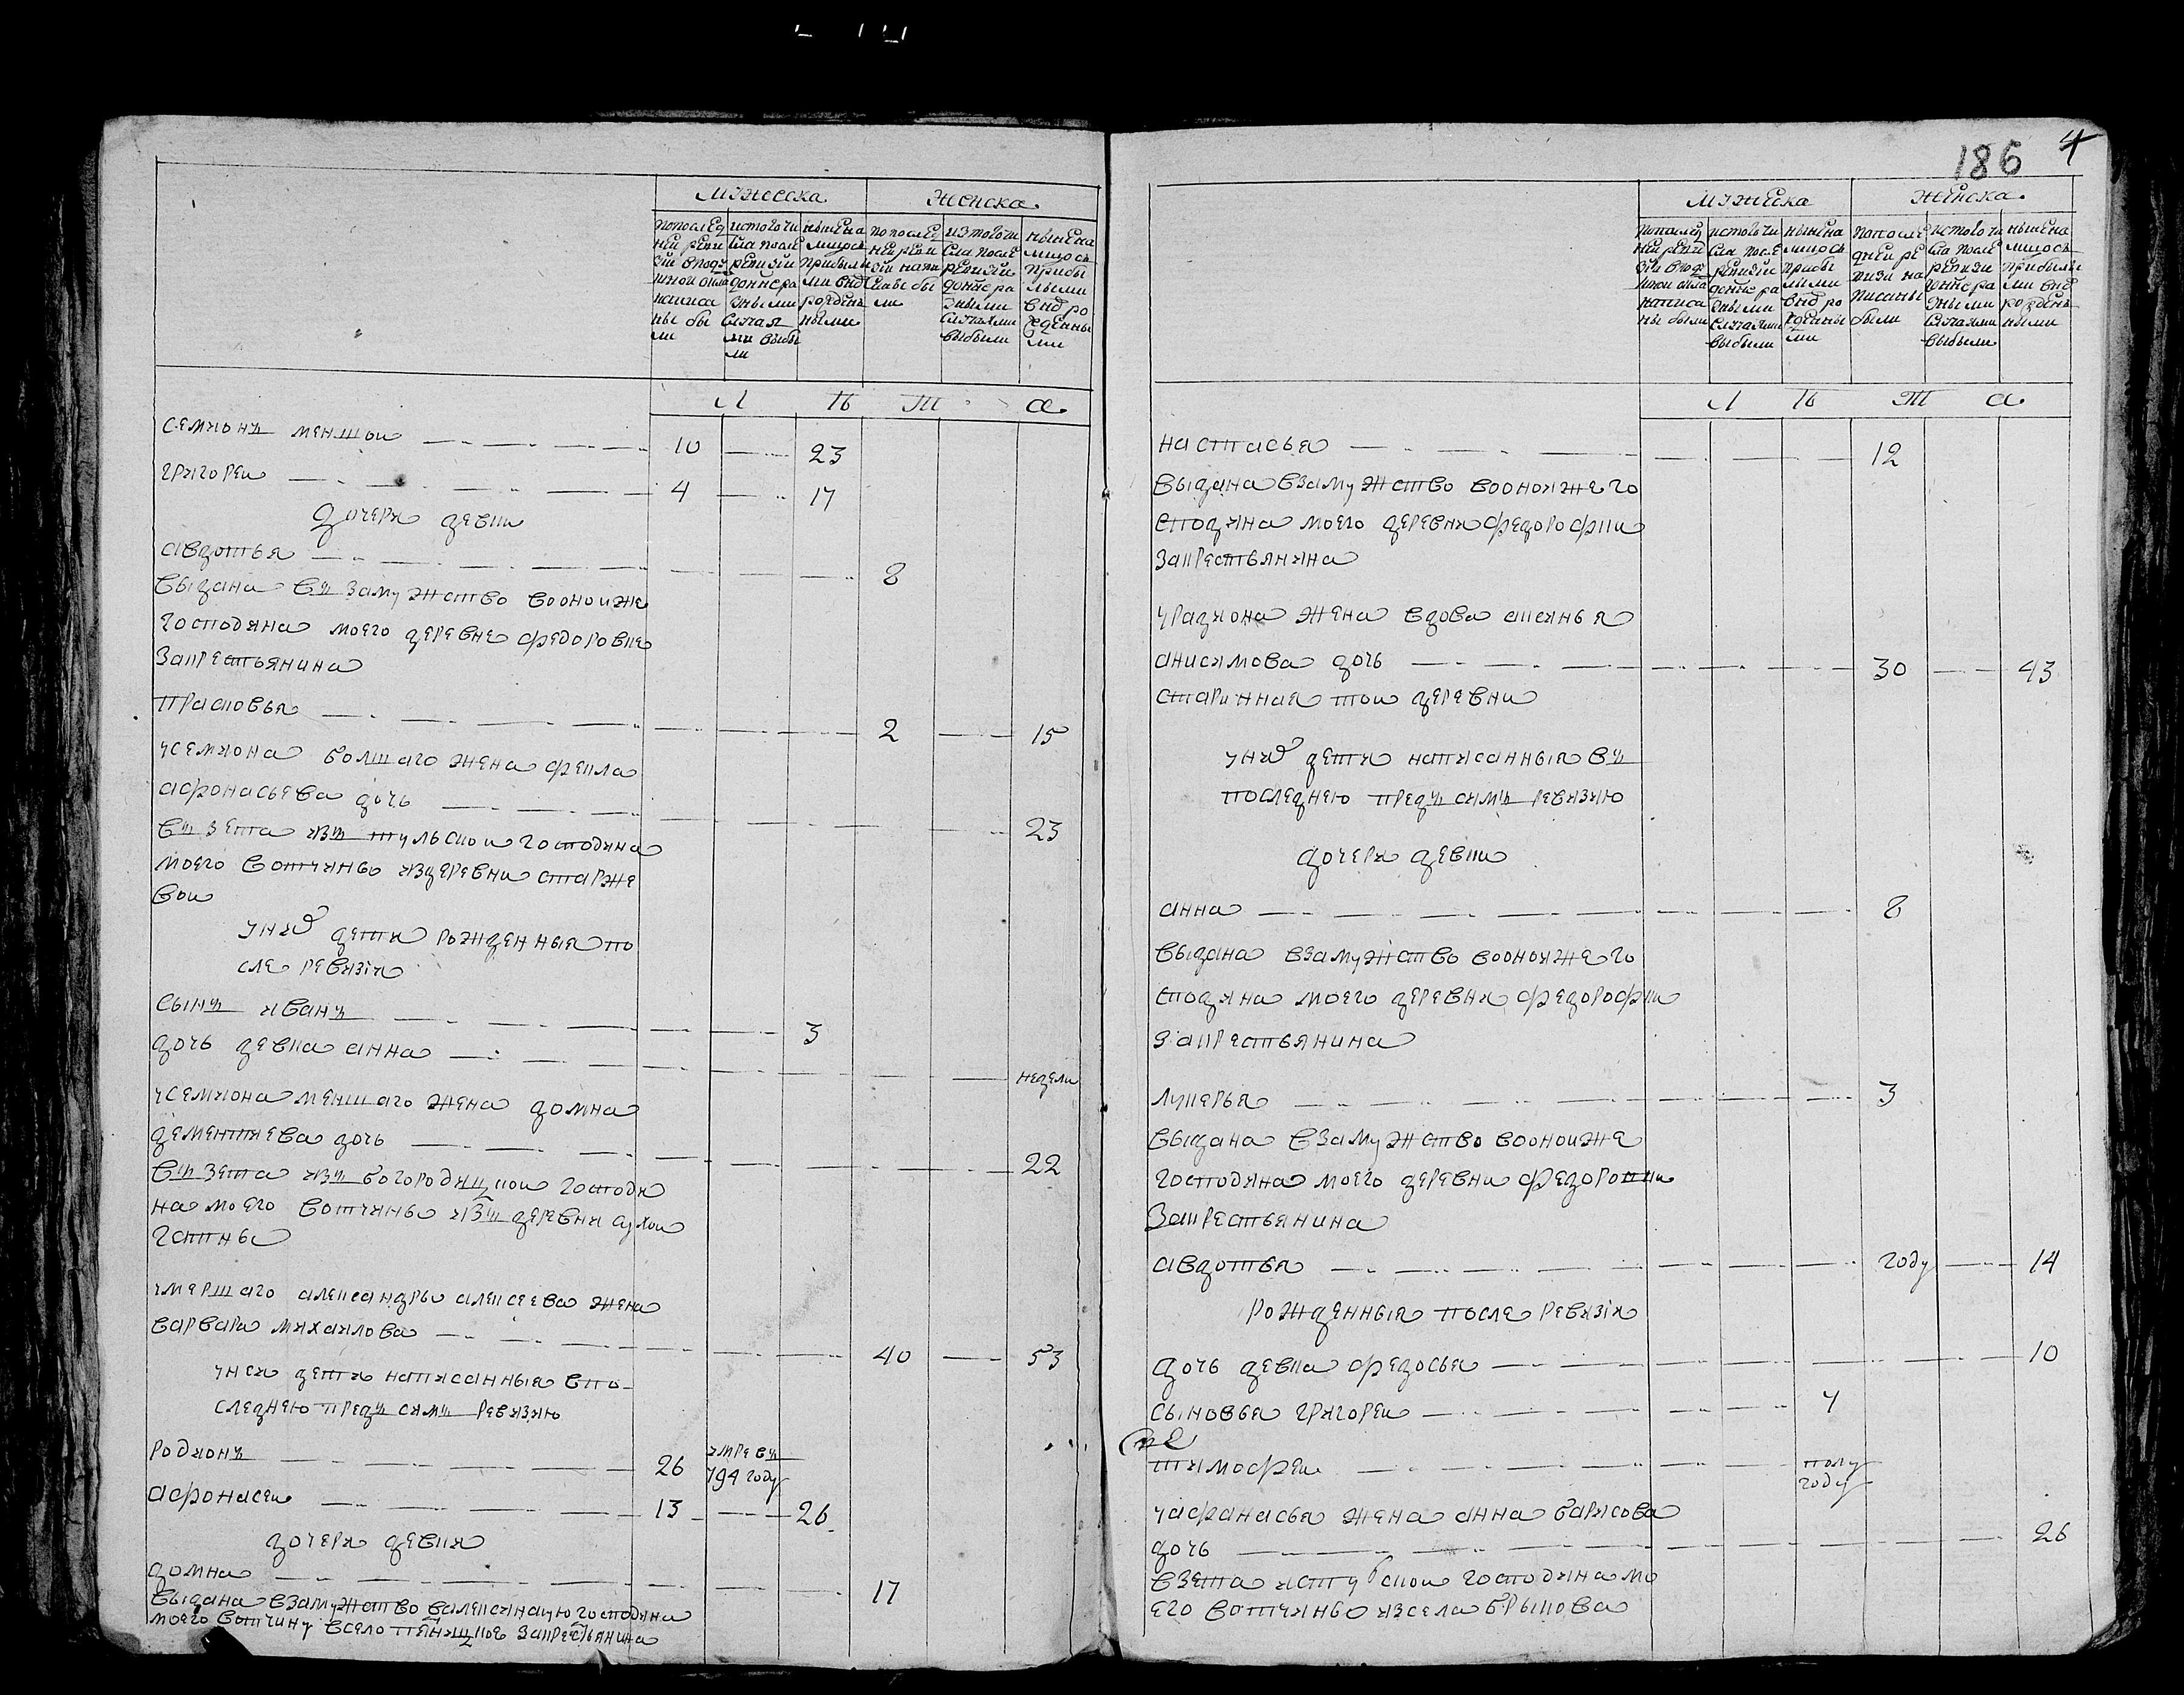 мужеска женска
попослед
ней реви
зии вподу
шной окла
написа
ны бы
ли
истого чи
сла после
ревизии
до н: с ра
зными
случая
ми выбы
ли
ныне на
лицось
прибылы
ми внов
рожден
ными
попослед
ней реви
зии напи
саны бы
ли
изтого чи
сла после
ревизии
до н: с ра
зными
случаями
выбыли
ныне на
лицось
прибы
лыми
внов ро
жденны
ми
Л ѣ т а
семионъ меншои 10 23
григореи 4 17
дочери девки
авдотья 8
выдана въ замужство воонои же
господина моего деревне федоровке
закрестьянина
прасковья 2 15
усемиона болшаго жена фекла
афонасьева дочь 23
въ зета изъ тульскои господина
моего вотчины издеревни старже
вои
уних дети рожденныя по
сле ревизiи
сынъ иванъ 3
дочь девка анна недели
усемиона меншаго жена домна
дементиева дочь 22
въ зета изъ богородицкои господи
на моего вотчины изъ деревни сухои
гатны
умершаго александры алексеева жена
варвара михаилова 40 53
унеи дети написанныя впо
следнею предъ симъ ревизию
родионъ 26 умре въ
794 году
афонасеи 13 26
дочери девки
домна 17
выдана взамужство валексинскую господина
моего вотчину всело пянищкое закрестьянина
186 4
мужеска женска
попослед
ней реви
зии вподу
шной окла
написа
ны были
истого чи
сла после
ревизии
до н: с ра
зными
случаями
выбыли
ныне на
лицось
прибы
лыми
внов ро
жденны
ми
попосле
дней ре
визи на
писаны
были
истого чи
сла после
ревизи
до н: с ра
зными
случаями
выбыли
ныне на
лицось
прибылы
ми внов
рожден
ными
Л ѣ т а
настасья 12
выдана взамужство воонои же го
сподина моего деревни федорофки
закрестьянина
урадиона жена вдова аксинья
анисимова дочь 30 43
стариннаея тои деревни
уних дети написанныя въ
последнею предъ симъ ревизию
дочери девки
анна 8
выдана взамужство воонои же го
сподина моего деревни федорофки
закрестьянина
лукерья 3
выдана взамужство воонои же
господина моего деревни федоровки
закрестьянина
авдотья году 14
рожденныя после ревизiи
дочь девка федосья 10
сыновья григореи 4
тимофеи полу
году
уафанасья жена анна барисова
дочь 26
взета исту скои господина мо
его вотчины изсела брыкова